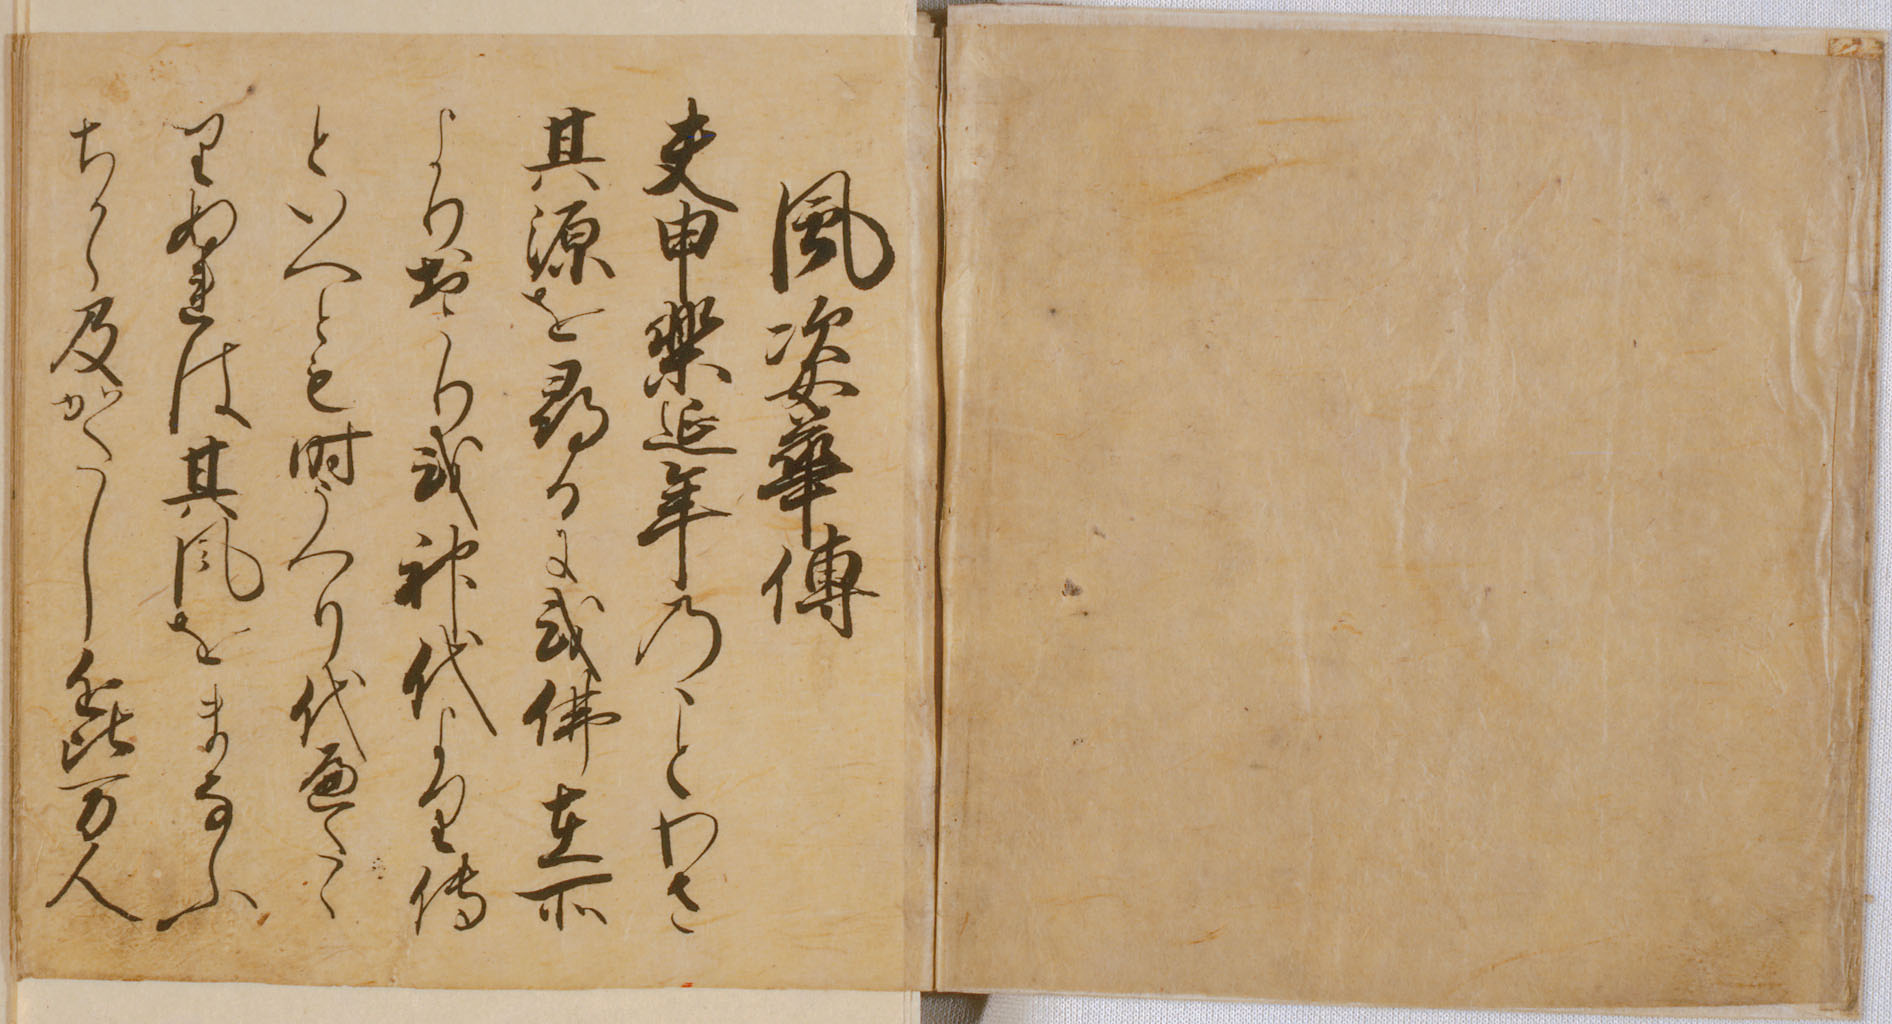 風姿華傳
夫申樂延年のことわさ
其源を尋るに或佛在所
よりおこり或神代より傳
といへとも時うつり代へたゝ
りぬれは其風をまなふ
ちから及がたし近比万人